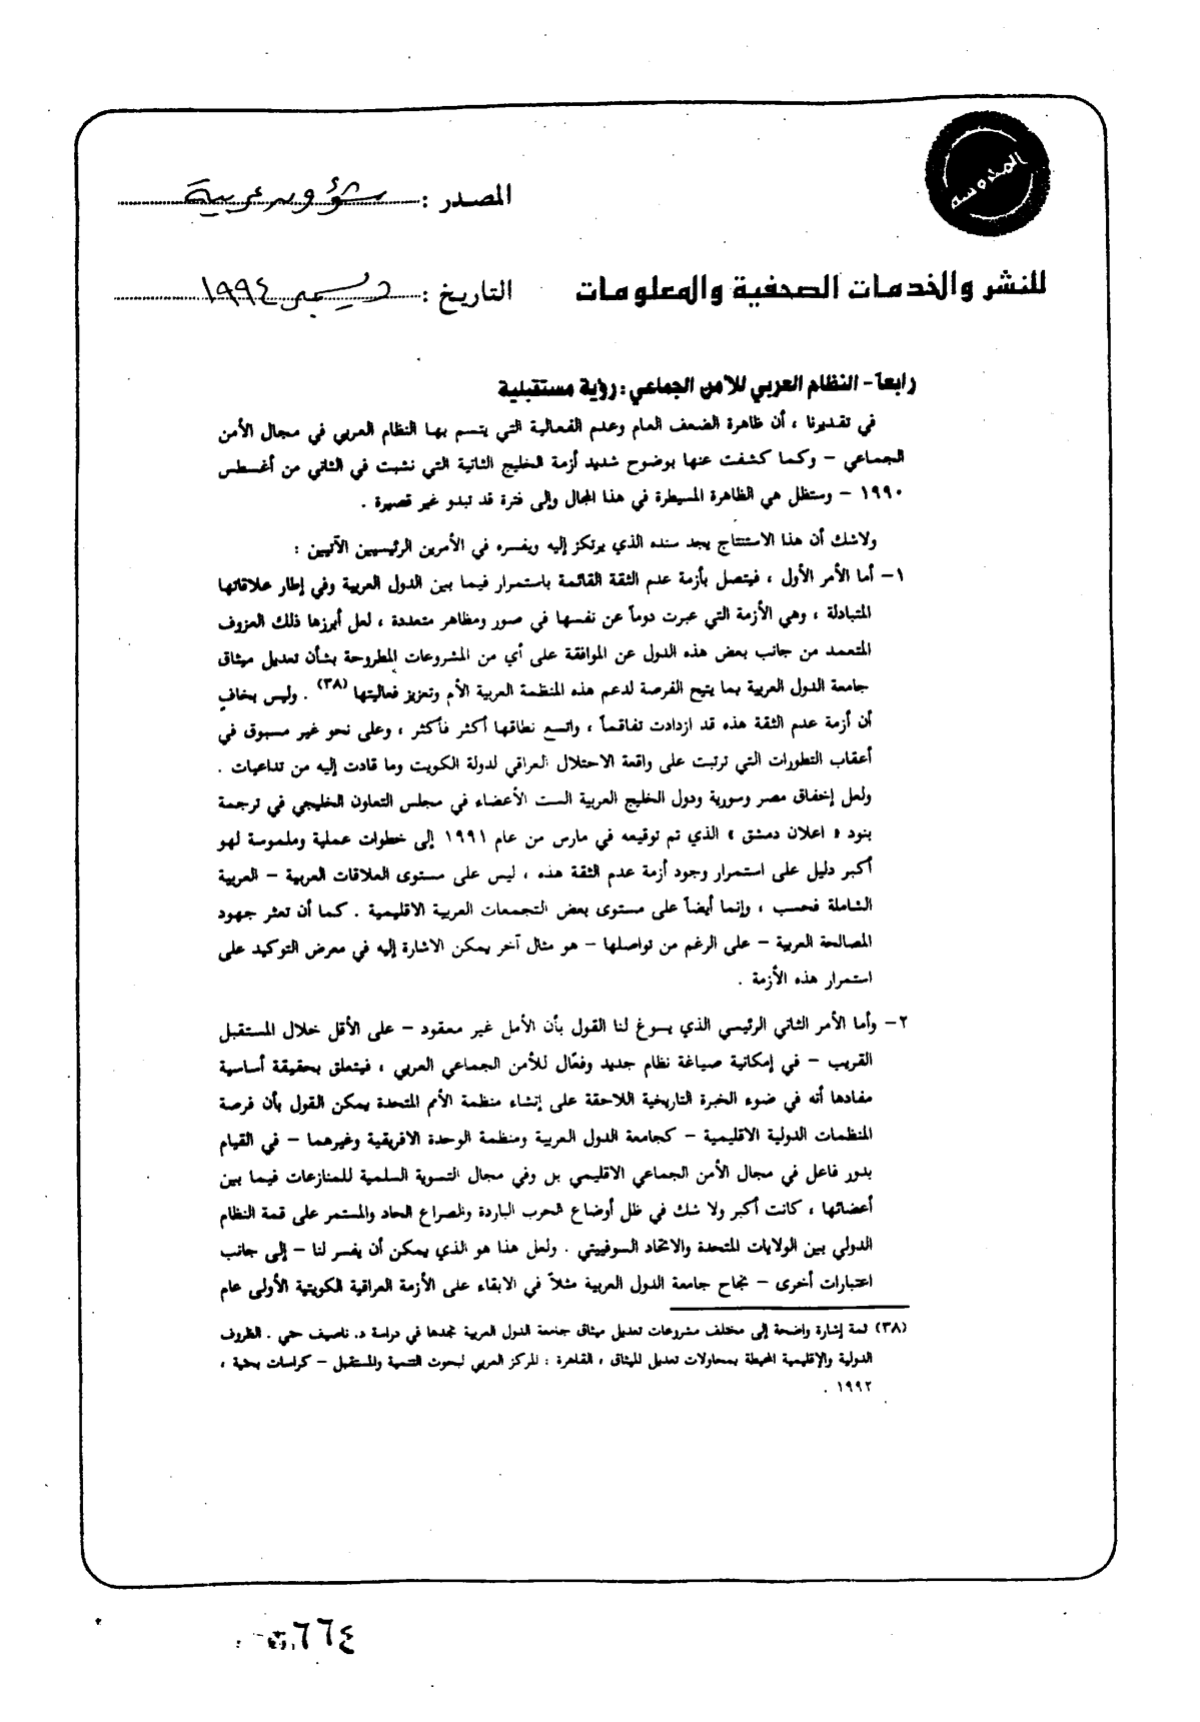 المدوسه
المصدر : شؤون عربية
للنشر والخدمات الصحفية والمعلومات
التاريخ : ديسمبر ١٩٩٤
رابعا - النظام العربي للأمن الجماعي : رؤية مستقبلية
في تقديرنا ، أن ظاهرة الضعف العام وعدم الفعالية التي يتسم بها النظام العربي في مجال الأمن
الجماعي – وكما كشفت عنها بوضوح شديد أزمة الخليج الثانية التي نشبت في الثاني من أغسطس
١٩٩٠ – وستظل هي الظاهرة المسيطرة في هذا المجال وإلى فترة قد تبدو غير قصيرة .
ولاشك أن هذا الاستنتاج يجد سنده الذي يرتكز إليه ويفسره في الأمرين الرئيسيين الآتيين :
١– أما الأمر الأول ، فيتصل بأزمة عدم الثقة القائمة باستمرار فيما بين الدول العربية وفي إطار علاقاتها
المتبادلة ، وهي الأزمة التي عبرت دوماً عن نفسها في صور ومظاهر متعددة ، لعل أبرزها ذلك العزوف
المتعمد من جانب بعض هذه الدول عن الموافقة على أي من المشروعات المطروحة بشأن تعديل ميثاق
جامعة الدول العربية بما يتيح الفرصة لدعم هذه المنظمة العربية الأم وتعزيز فعاليتها (٣٨) . وليس بخافٍ
أن أزمة عدم الثقة هذه قد ازدادت تفاقماً ، واتسع نطاقها أكثر فأكثر ، وعلى نحو غير مسبوق في
أعقاب التطورات التي ترتبت على واقعة الاحتلال العراقي لدولة الكويت وما قادت إليه من تداعيات .
ولعل إخفاق مصر وسورية ودول الخليج العربية الست الأعضاء في مجلس التعاون الخليجي في ترجمة
بنود « اعلان دمشق » الذي تم توقيعه في مارس من عام ١٩٩١ إلى خطوات عملية وملموسة لهو
أكبر دليل على استمرار وجود أزمة عدم الثقة هذه ، ليس على مستوى العلاقات العربية – العربية
الشاملة فحسب ، وإنما أيضاً على مستوى بعض التجمعات العربية الاقليمية . كما أن تعثر جهود
المصالحة العربية – على الرغم من تواصلها – هو مثال آخر يمكن الاشارة إليه في معرض التوكيد على
استمرار هذه الأزمة .
٢– وأما الأمر الثاني الرئيسي الذي يسوغ لنا القول بأن الأمل غير معقود – على الأقل خلال المستقبل
القريب – في إمكانية صياغة نظام جديد وفعّال للأمن الجماعي العربي ، فيتعلق بحقيقة أساسية
مفادها أنه في ضوء الخبرة التاريخية اللاحقة على إنشاء منظمة الأمم المتحدة يمكن القول بأن فرصة
المنظمات الدولية الاقليمية – كجامعة الدول العربية ومنظمة الوحدة الافريقية وغيرهما – في القيام
بدور فاعل في مجال الأمن الجماعي الاقليمي بل وفي مجال التسوية السلمية للمنازعات فيما بين
أعضائها ، كانت أكبر ولا شك في ظل أوضاع الحرب الباردة والصراع الحاد والمستمر على قمة النظام
الدولي بين الولايات المتحدة والاتحاد السوفييتي . ولعل هذا هو الذي يمكن أن يفسر لنا – إلى جانب
اعتبارات أخرى – نجاح جامعة الدول العربية مثلاً في الابقاء على الأزمة العراقية الكويتية الأولى عام
(٣٨) ثمة إشارة واضحة إلى مختلف مشروعات تعديل ميثاق جامعة الدول العربية تجدها في دراسة د. ناصيف حتي . الظروف
الدولية والإقليمية المحيطة بمحاولات تعديل الميثاق ، القاهرة : المركز العربي لبحوث التنمية والمستقبل – كراسات بحثية ،
١٩٩٢ .
٦٦٤